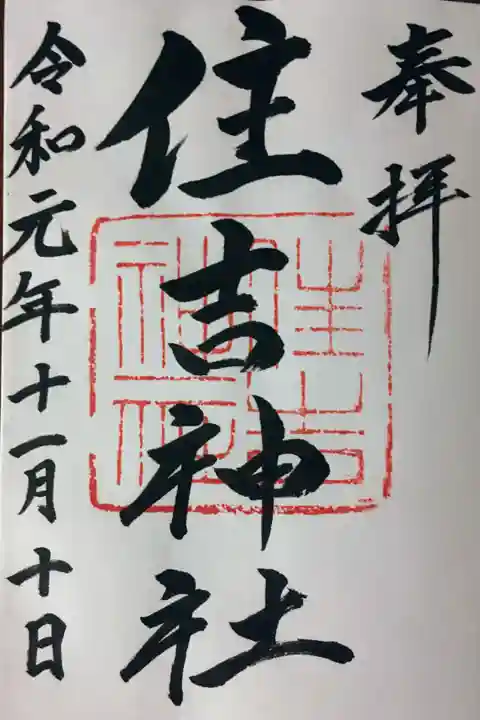 奉拝
住吉神社
住吉神社
令和元年十一月十日